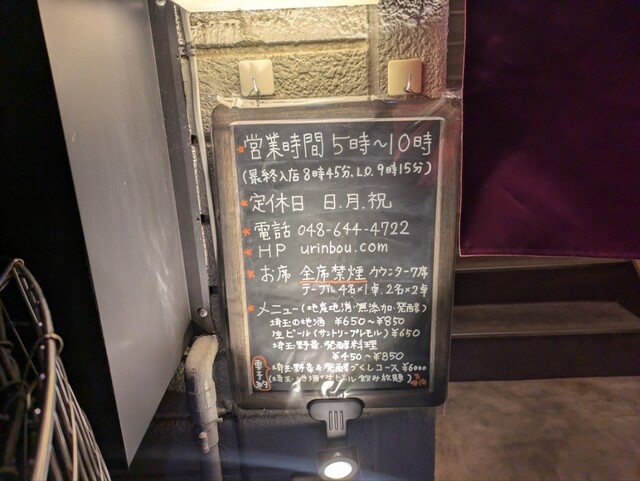 *営業時間 5時〜10時
(最終入店8時45分、L.O.9時15分)
*定休日 日.月.祝
*電話 048-644-4722
*HP urinbou.com
*お席 全席禁煙 カウンター7席
テーブル4名×1卓.2名×2卓
*メニュー(地産地消・無添加・発酵)
埼玉の地酒 ¥650〜¥850
生ビール(サントリープレモル)¥650
埼玉野菜・発酵料理
¥450〜¥850
要予約 埼玉野菜&発酵づくしコース ¥6000
(埼玉・地酒&生ビール飲み放題)